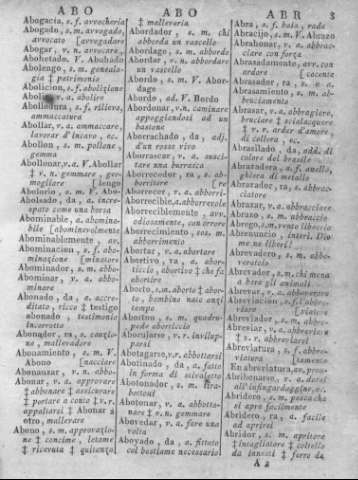 ABO
ABO
ABR 3
Abogacía, s. f. avvocheria
Abogado, s. m. avvogado,
avvocato [avvogadare
Abogar, v. n. avvocare,
Abohetado, V. Abuhado
Abolengo, s. m. genealo-
gia ‡ patrimonio
Abolicion, s. f. abolizione
v. a. abolire
Abolladura, s. f. rilievo,
ammaccatura
Abollar, v. a. ammaccare,
lavorar d'incavo, ec.
Abollon, s. m. pollone,
gemma
Abollonar, v. a. V. Abollar
‡ v. n. gemmare, ger-
mogliare [lengo
Abolorio, s. m. V. Abo-
Abolsado, da, a. incre-
spato come una borsa
Abominable, a. abomina-
bile [abominevolmente
Abominablemente, av.
Abominacion, s. f. abo-
minazione [minatore
Abominador, s. m. abo-
Abominar, v. a. abbo-
minare
Abonado, da, a. accre-
ditato, ricco ‡ testigo
abonado, testimonio
incorrotto
Abonador, ra, s. canzio-
no, mallevadore
Abonamiento, s. m. V.
Abono [nacciare
Abonanzar, v. n. abbo-
Abonar, v. a. approvare
‡ abbonare ‡ assicurare
‡ portare a conto ‡ v. r.
appaltarsi ‡ Abonar á
otro, mallevare
Abono, s. m. approvazio-
ne ‡ concime, letame
‡ ricevuta ‡ quitanza
‡ mallevaria
Abordador, s. m. chi
abborda un vascello
Abordage, s. m. abbordo
Abordar, v. n. abbordare
un vascello
Abordo, s. m. V. Abor-
dage
Abordo, ad. V. Bordo
Abordonar, v. n. caminare
appoggiandosi ad un
bastone
Aborrachado, da, adj.
d'un rosso vivo
Aborrascar, v. a. susci-
tare una burrasca
Aborrecedor, ra, s. ab-
borritore [re
Aborrecer, v. a. abborri-
Aborrecible, a. abborrevole
Aborreciblemente, avv.
odiosamente, con orrore
Aborrecimiento, sos. m.
abborrimento
Abortar, v. a. abortare
Abortivo, va, a. abor-
ticcio, abortivo ‡ che fa
abortire
Aborto, s. m. aborto ‡ abor-
to, bambino nato anzi
tempo
Abortón, s. m. quadru-
pede aborticcio
Aborujarse, v. r. invilup-
parsi
Abotagarse, v. r. abbottarsi
Abotinado, da, a. fatto
in forma di stivaletto
Abotonador, s. m. tira-
bottoni
Abotonar, v. a. abbotto-
nare ‡ v. n. gemmare
Abovedar, v. a. fare una
volta
Aboyado, da, a. fittato
col bestiame necessario
Abra, s. f. baia, rada
Abracijo, s. m. V. Abrazo
Abrahonar, v. a. abbrac-
ciare con forza
Abrasadamente, avv. con
ardore [cocente
Abrasador, ra, s. e a.
Abrasamiento, s. m. ab-
bruciamento
Abrasar, v. a. abbragiare,
bruciare ‡ scialacquare
‡ v. r. ardar d'amore,
di collera, ec.
Abrasilado, da, add. di
colore del brasile
Abrazadera, s. f. anello,
ghiera di metallo
Abrazador, ra, s. abbrac-
ciatore
Abrazar, v. a. abbracciare
Abrazo, s. m. abbraccio
Abrego, s. m. vento libeccio
Abrenuncio, interj. Dio
me ne liberi!
Abrevadero, s. m. abbe-
veratoio
Abrevador, s. m. chi mena
a bere gli animali
Abrevar, v. a. abbeverare
Abreviacion, s. f. l'abbre-
viare [viatore
Abreviador, s. m. abbre-
Abreviar, v. a. abbrevia-
re ‡ s. r. abbreviarsi
Abreviatura, s. f. abbre-
viatura
En abreviatura, av. presto
Abribonarse, v. a. darsi
all'infingardaggine, ec.
Abridero, s. m. pesca che
si apre facilmente
Abridero, ra, a. facile
ad aprirsi
Abridor, s. m. apritore
‡ ingagliatore ‡ coltello
da innesti ‡ ferro da
A 2